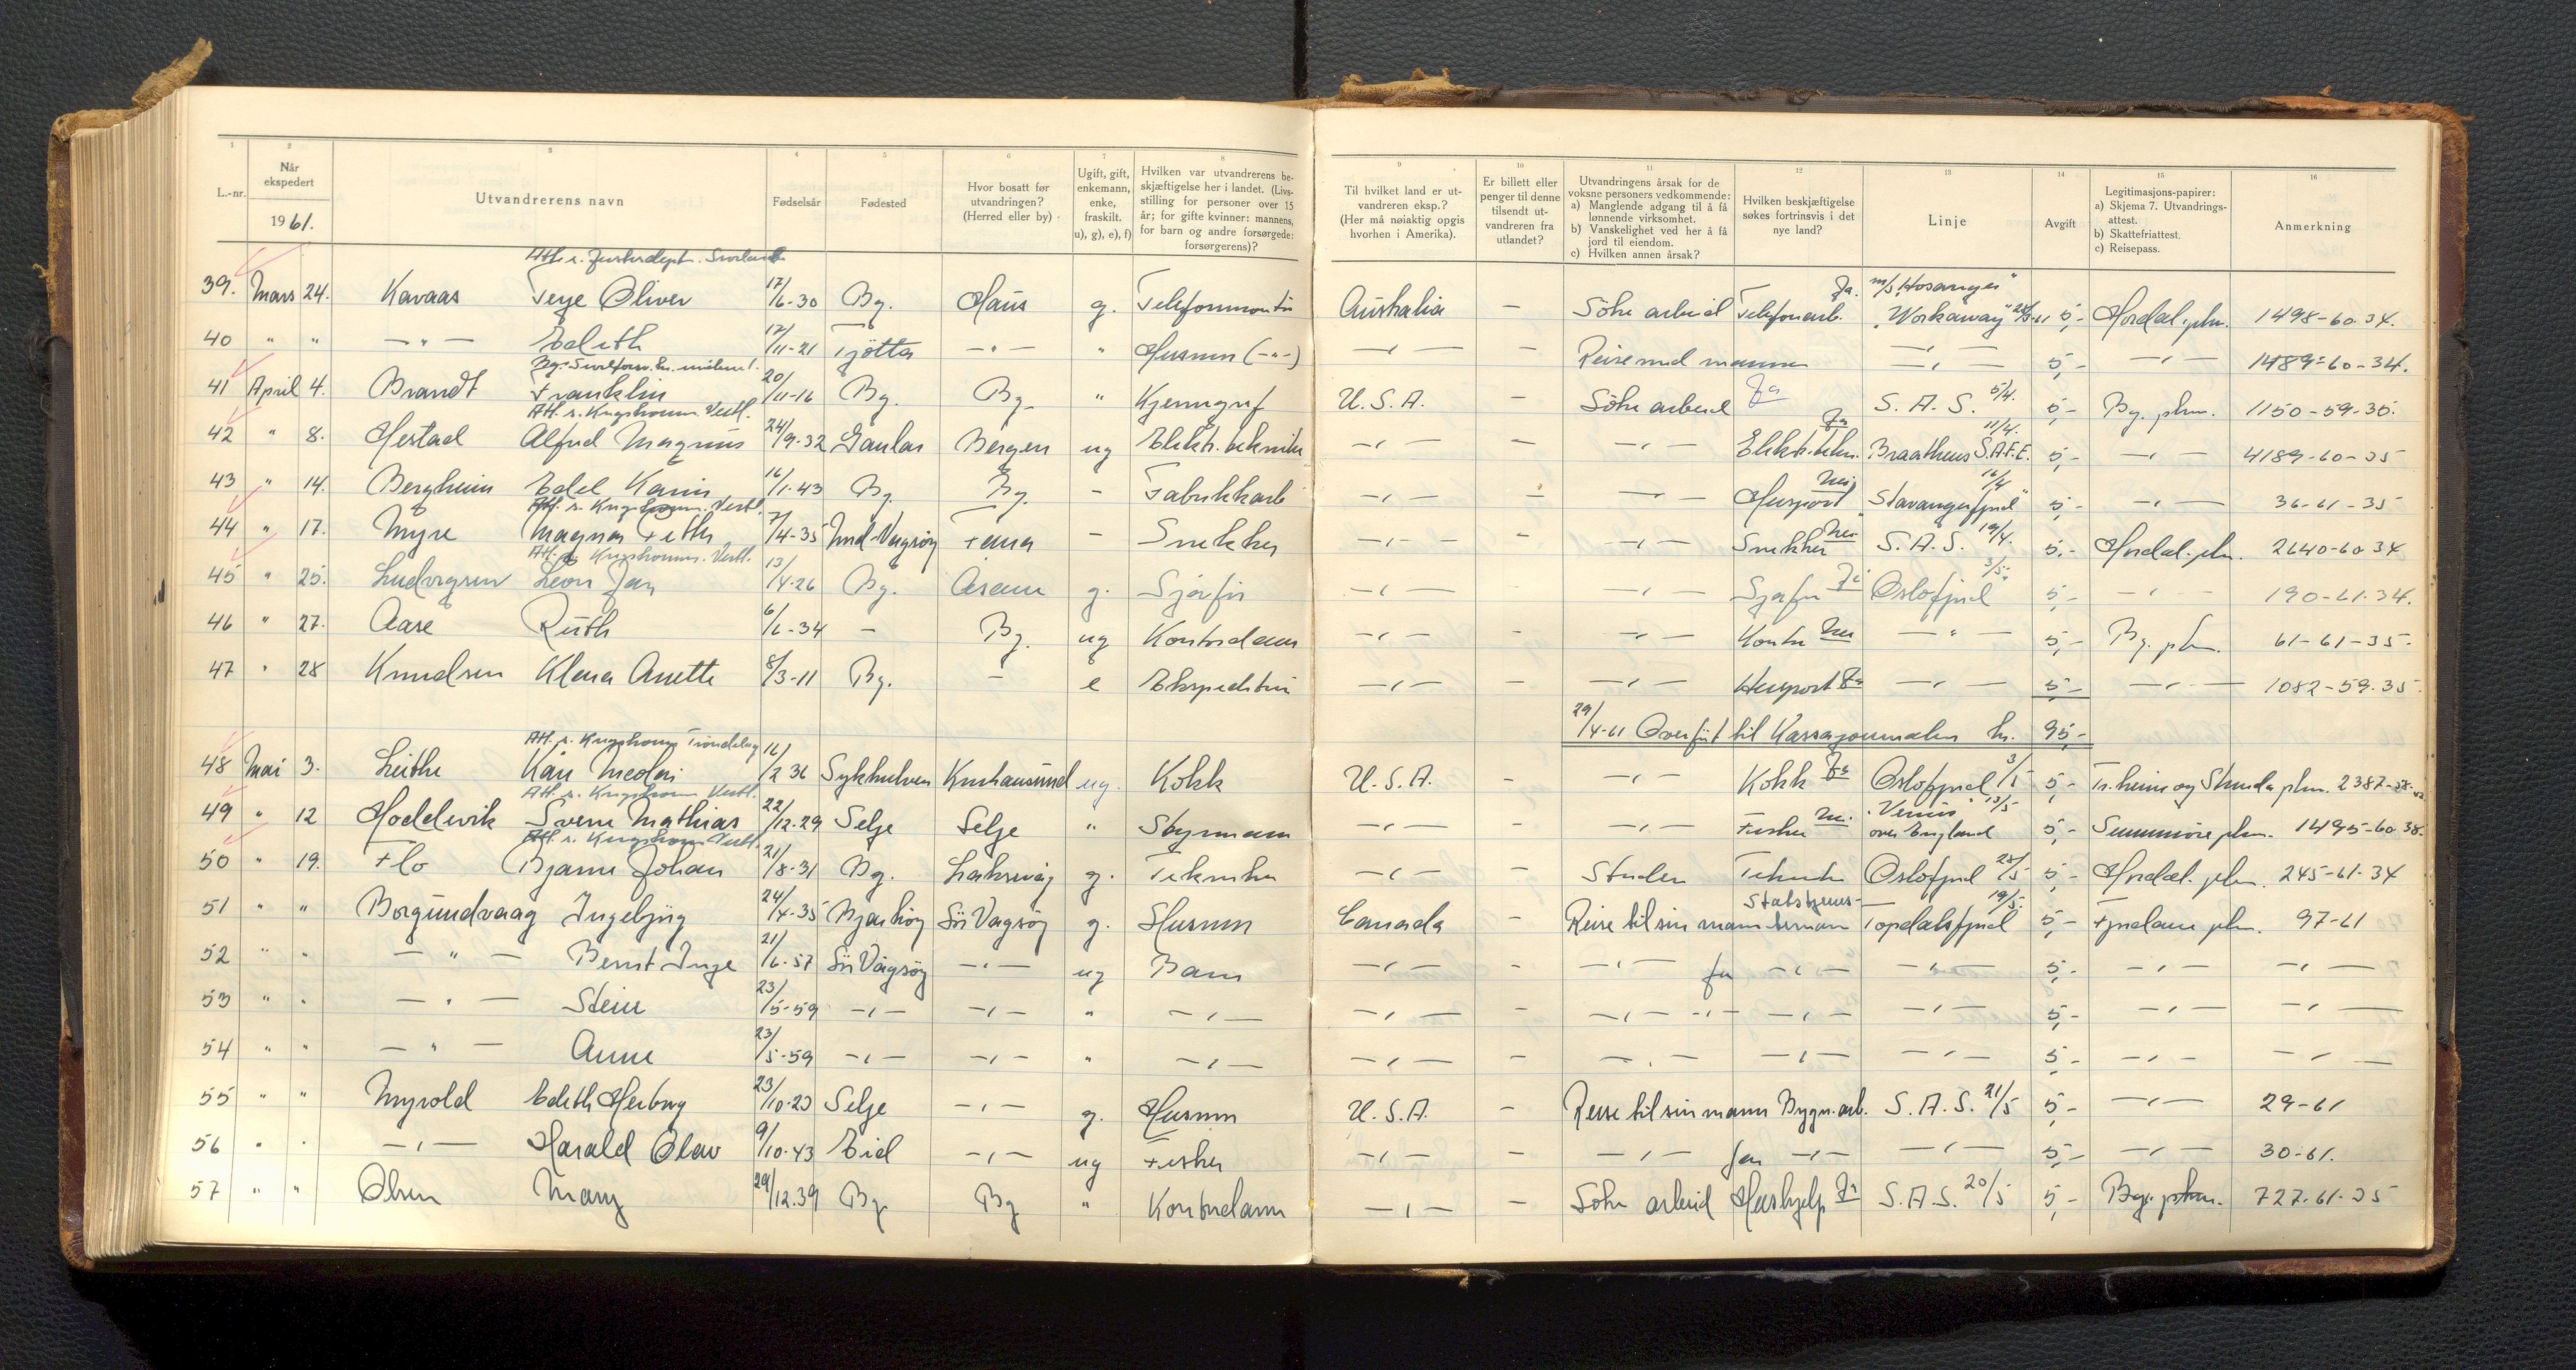 1 2 3 4 5 6 7 8 9 10 11 12 13 14 15 16
L.-nr. Når ekspedert 1961. Utvandrerens navn Fødselsår Fødested Hvor bosatt før utvandringen? (Herred eller by) Ugift, gift, enkemann, enke, fraskilt. u), g), e), f) Hvilken var utvandrerens beskjæftigelse her i landet. (Livsstilling for personer over 15 år; for gifte kvinner: mannens, for barn og andre forsørgede: forsørgerens)? Til hvilket land er utvandreren eksp.? (Her må nøiaktig opgis hvorhen i Amerika). Er billett eller penger til denne tilsendt utvandreren fra utlandet? Utvandringens årsak for de voksne personers vedkommende: a) Manglende adgang til å få lønnende virksomhet. b) Vanskelighet ved her å få jord til eiendom. c) Hvilken annen årsak? Hvilken beskjæftigelse søkes fortrinsvis i det nye land? Linje Avgift Legitimasjons-papirer: a) Skjema 7. Utvandringsattest. b) Skattefriattest. c) Reisepass. Anmerkning
39. Mars 24. Kavaas Terje Oliver 17/6-30 By. Haus g. Telefonmontør Australia — Söke arbeid Telefonarb. Ja. m/s „Hosanger" „Workaway" 5,- Hordal. pkm. 1498-60-34.
40 " " —"— Edith 12/11-21 Tjötta —"— " Husmor (-"-) —"— — Reise med mannen —"— 5,- —"— 1489-60-34.
41 April 4. Brandt Franklin 20/11-16 By. By. " U.S.A. — Söke arbeid Ja S.A.S. 5/4. 5,- By. pkm. 1150-59-35.
Att. s. Krigskomm. Vestl.
42 " 8. Hestad Alfred Magnus 24/9-32 Gaular Bergen ug Elektr. tekniker —"— — —"— Elektr. tekn. Ja Braathens S.A.F.E. 11/4. 5,- —"— 4189-60-35
43 " 14. Bergheim Edel Karin 16/1-43 By. By. - Fabrikkarb —"— — —"— Huspost Nei „Stavangerfjord" 16/4 5,- —"— 36-61-35
Att. s. Krigskomm. Vestl.
44 " 17. Myre Magnar 7/4-35 Nord-Vågsöy Fana - Snekker —"— — —"— Snekker Nei S.A.S. 19/4. 5,- Hordal. pkm. 2640-60-34
Att. s. Krigskomm. Vestl.
45 " 25. Ludvigsen Leon Jan 13/4-26 By. Asane g. Sjåfør —"— — —"— Sjåfør Ja Oslofjord 3/5. 5,- —"— 190-61-34.
46 " 27. Aase Ruth 6/6-34 - By. ug Kontordame —"— — —"— Kontor Nei —"— 5,- By. pkm. 61-61-35.
47 " 28 Knudsen Klara Anette 8/3-11 By. - e Ekspeditrise —"— — —"— Huspost Ja —"— 5,- —"— 1082-59-35.
29/4-61 Overfört til Kassajournalen kr. 95,-
Att. s. Krigskomm Tröndelag
48 Mai 3. Leithe Kåre Nicolai 16/2 36 Sykkylven Kristiansund ug. Kokk U.S.A. - —"— Kokk Ja Oslofjord 3/5 5,- Tr.heim og Strinda pkm. 2387-58-
Att. s. Krigskomm Vestl.
49 " 12 Hoddevik Sverre Mathias 22/12-29 Selje Selje " Styrmann —"— - —"— Fisker Nei. „Venus" 13/5 over England 5,- Sunnmöre pkm. 1495-60-38.
Att. s. Krigskomm Vestl.
50 " 19. Flo Bjarne Johan 21/8-31 By. Laksevåg g. Tekniker —"— - Studier Tekniker Oslofjord 25/5 5,- Hordal. pkm. 245-61-34
51 " " Borgundvaag Ingebjörg 24/4-35 Sör Vagsöy g. Husmor Canada — Reise til sin mann Topdalsfjord 19/5. 5,- Fjordane pkm. 97-61
52 " " —"— Bernt Inge 21/6-57 Sör Vågsöy —"— ug Barn —"— - —"— far —"— —"— 5,- —"— —"—
53 " " —"— Stein 23/5-59 —"— —"— " —"— —"— — —"— —"— —"— —"— 5,- —"— —"—
54 " " —"— Anne 23/5-59 —"— —"— " —"— —"— — —"— —"— —"— 5,- —"— —"—
55 " " Myrold Edith Herborg 23/10-23 Selje —"— g. Husmor U.S.A. — Reise til sin mann Bygn. arb. S.A.S. 21/5 5,- —"— 29-61
56 " " —"— Harald Olav 9/10-43 Eid —"— ug Fisker —"— — —"— far —"— —"— 5,- —"— 30-61.
57 " " Olsen Mary 29/12.39 By By " Kontordame —"— — Söke arbeid Hushjelp Ja S.A.S. 20/5 5,- Byr. pkm. 727-61-35